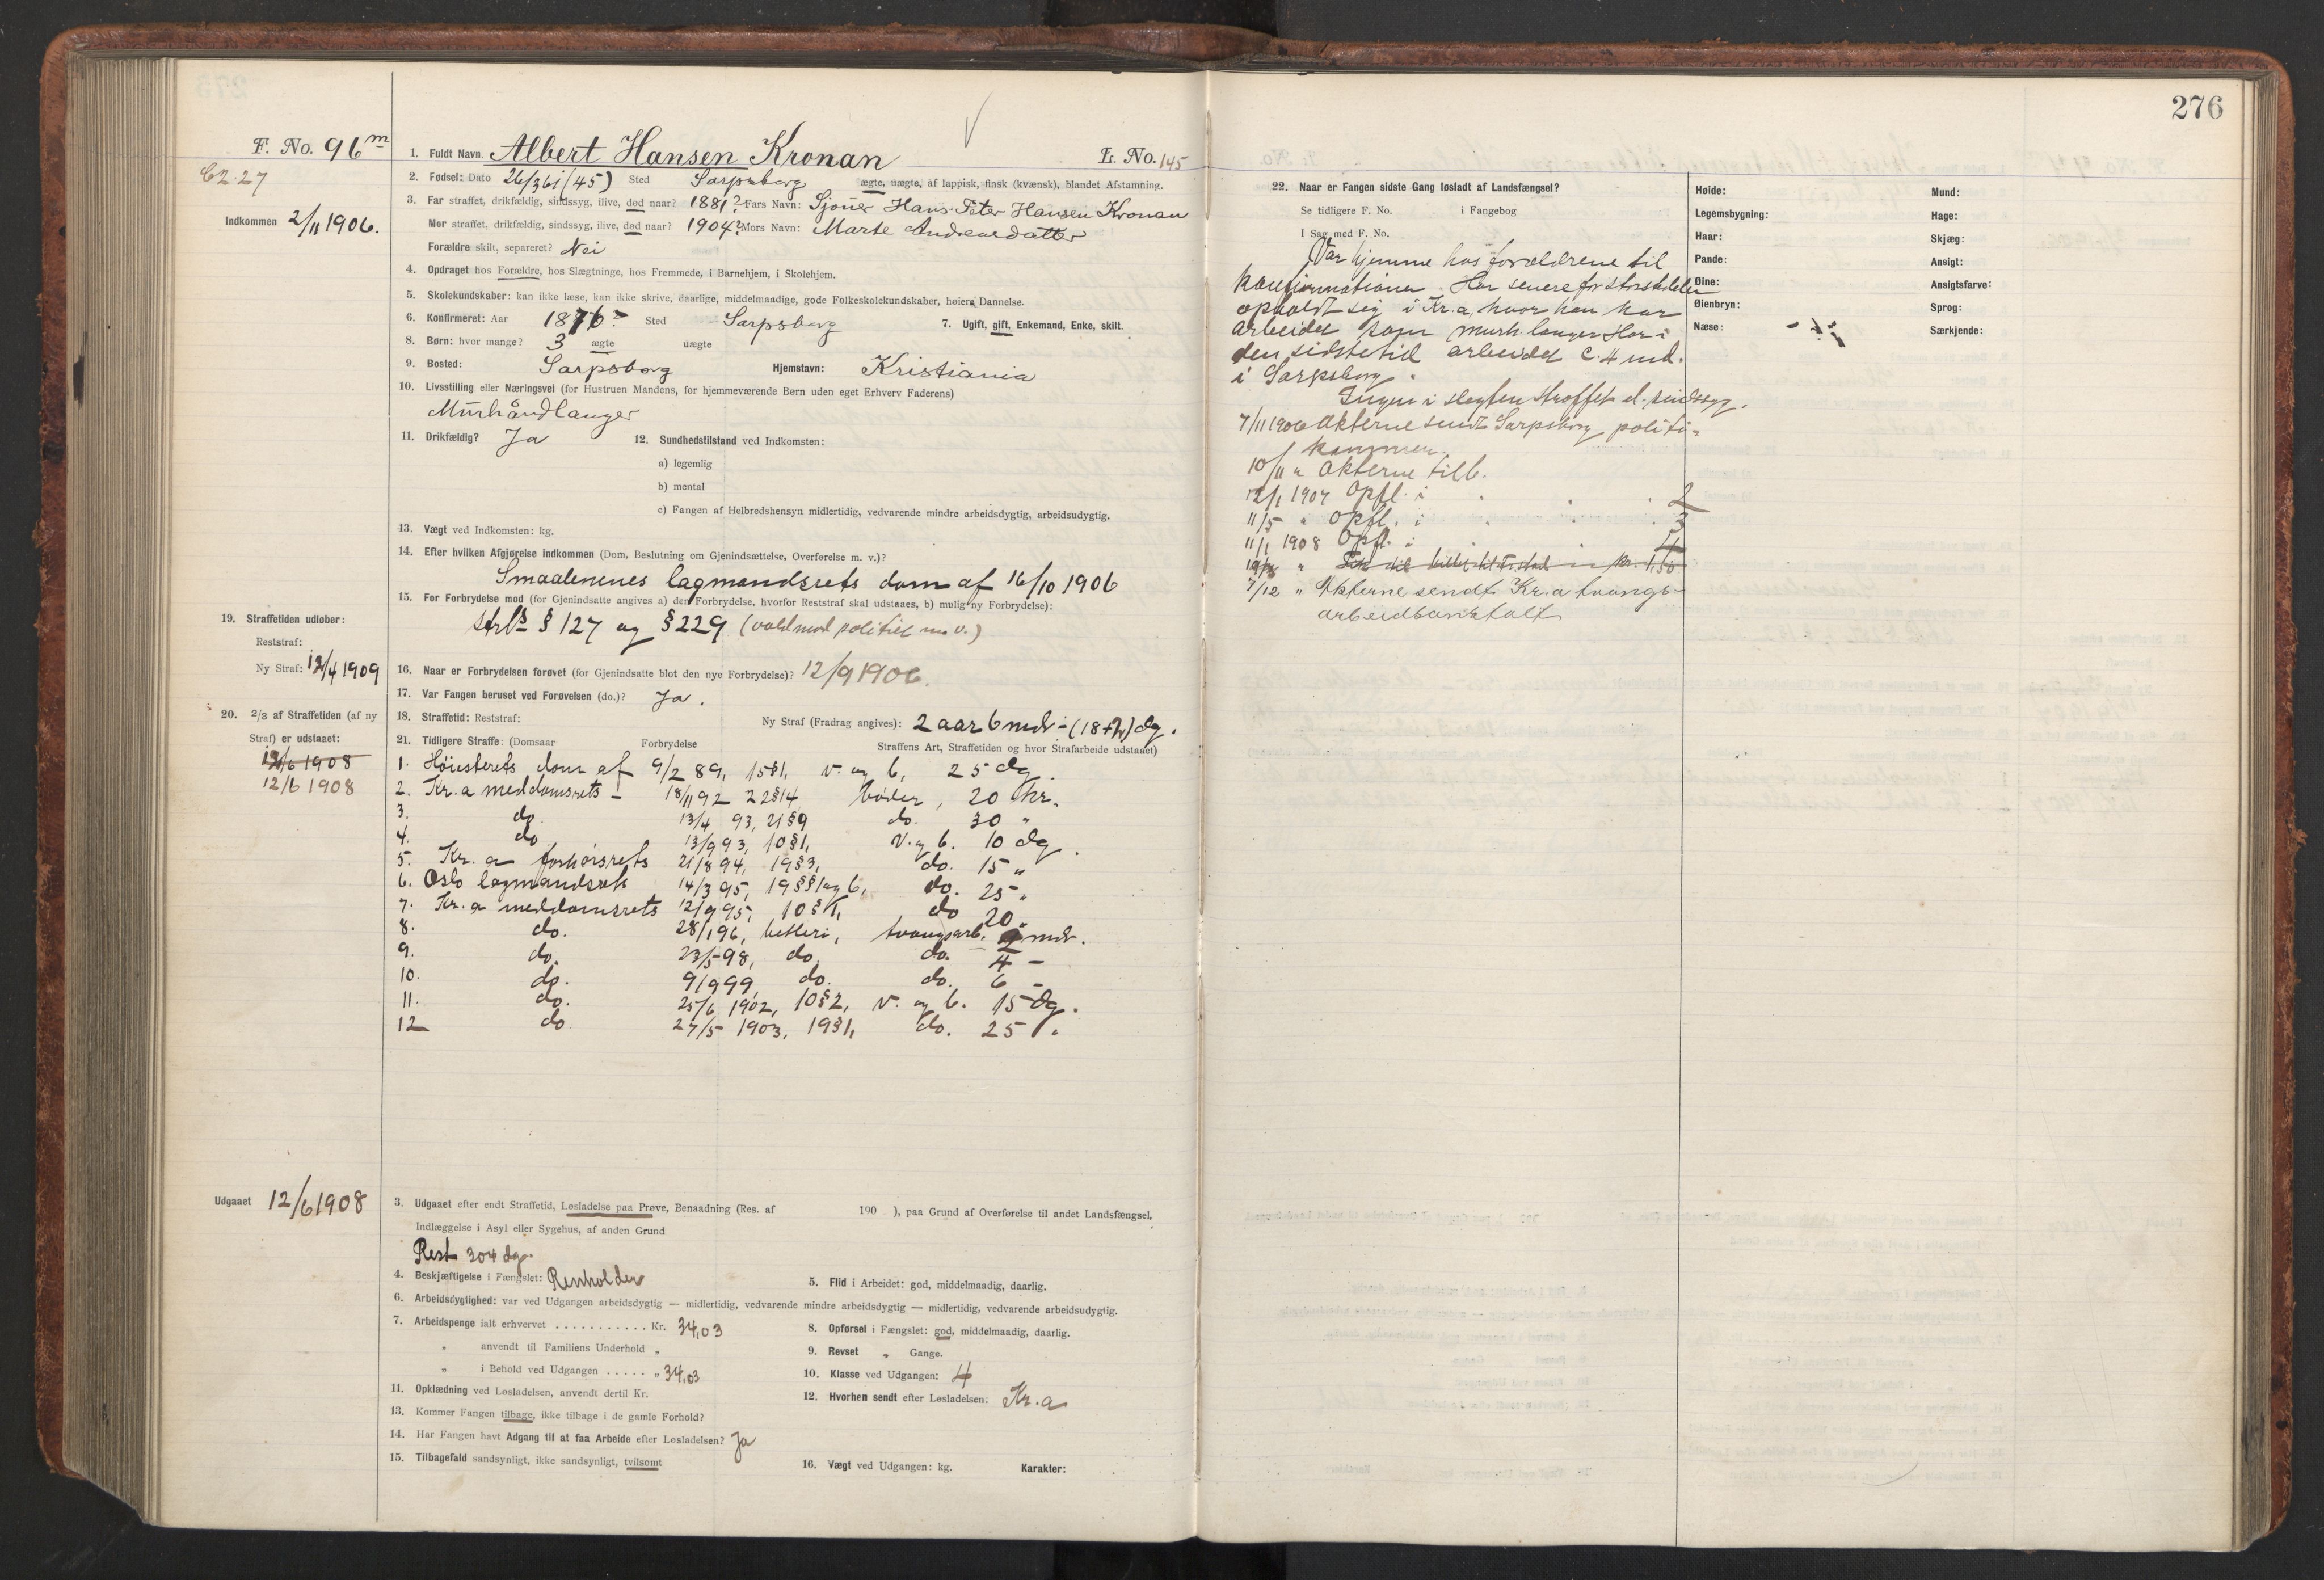 276
F. No. 96 m
C2.27
Indkommen 2/11 1906.
1. Fuldt Navn. Albert Hansen Kronan L. No. 145
2. Fødsel: Dato 26/3 61 (45) Sted Sarpsborg ægte, uægte, af lappisk, finsk (kvænsk), blandet Afstamning.
3. Far straffet, drikfældig, sindssyg, ilive, død naar? 1881? Fars Navn: Hans Peter Hansen Kronan
Mor straffet, drikfældig, sindssyg, ilive, død naar? 1904? Mors Navn: Marte Andreasdatter
Forældre skilt, separeret? Nei
4. Opdraget hos Forældre, hos Slægtninge, hos Fremmede, i Barnehjem, i Skolehjem.
5. Skolekundskaber: kan ikke læse, kan ikke skrive, daarlige, middelmaadige, gode Folkeskolekundskaber, høiere Dannelse.
6. Konfirmeret: Aar 1876? Sted Sarpsborg 7. Ugift, gift, Enkemand, Enke, skilt.
8. Børn: hvor mange? 3 ægte uægte
9. Bosted: Sarpsborg Hjemstavn: Kristiania
10. Livsstilling eller Næringsvei (for Hustruen Mandens, for hjemmeværende Børn uden eget Erhverv Faderens)
Murhåndlanger
11. Drikfældig? Ja 12. Sundhedstilstand ved Indkomsten:
a) legemlig
b) mental
c) Fangen af Helbredshensyn midlertidig, vedvarende mindre arbeidsdygtig, arbeidsudygtig.
13. Vægt ved Indkomsten: kg.
14. Efter hvilken Afgjørelse indkommen (Dom, Beslutning om Gjenindsættelse, Overførelse m. v.)?
Smaalenenes lagmandsrets dom af 16/10 1906
15. For Forbrydelse mod (for Gjenindsatte angives a) den Forbrydelse, hvorfor Reststraf skal udstaaes, b) mulig ny Forbrydelse):
strfl § 127 og § 229 (vold mod politiet m.v.)
19. Straffetiden udløber:
Reststraf:
Ny Straf: 12/4 1909
16. Naar er Forbrydelsen forøvet (for Gjenindsatte blot den nye Forbrydelse)? 12/9 1906.
17. Var Fangen beruset ved Forøvelsen (do.)? Ja.
20. 2/3 af Straffetiden (af ny
Straf) er udstaaet:
12/6 1908
12/6 1908
18. Straffetid: Reststraf: Ny Straf (Fradrag angives): 2 aar 6 mdr ÷ (18+2) dg.
21. Tidligere Straffe: (Domsaar Forbrydelse Straffens Art, Straffetiden og hvor Strafarbeide udstaaet)
1. Høiesterets dom af 9/2 89, 15§1, v. og b, 25 dg.
2. Kr.a meddomsrets - 18/11 92 22§14 bøder, 20 kr.
3. do. 13/4 93, 21§9 do. 30 "
4. do 13/9 93, 10§1, v. og b. 10 dg.
5. Kr.a forhørsrets 21/8 94, 19§3, do. 15 "
6. Oslo lagmandsrets 14/3 95, 19§§1 og 6, do. 25 "
7. Kr.a meddomsrets 12/9 95, 10§1, do 20 "
8. do. 28/1 96, betleri, tvangsarb. 2 mdr.
9. do. 23/5 98, do, do. 4 -
10. do. 9/9 99, do. do. 6 -
11. do. 25/6 1902, 10§2, v. og b. 15 dg.
12 do 27/5 1903, 19§1, do. 25 "
Udgaaet 12/6 1908
3. Udgaaet efter endt Straffetid, Løsladelse paa Prøve, Benaadning (Res. af 190 ), paa Grund af Overførelse til andet Landsfængsel,
Indlæggelse i Asyl eller Sygehus, af anden Grund
Rest 304 dg.
4. Beskjæftigelse i Fængslet: Renholder 5. Flid i Arbeidet: god, middelmaadig, daarlig.
6. Arbeidsdygtighed: var ved Udgangen arbeidsdygtig — midlertidig, vedvarende mindre arbeidsdygtig — midlertidig, vedvarende arbeidsudygtig.
7. Arbeidspenge ialt erhvervet ........... Kr. 34,03 8. Opførsel i Fængslet: god, middelmaadig, daarlig.
" anvendt til Familiens Underhold " 9. Revset " Gange.
" i Behold ved Udgangen ..... " 34,03 10. Klasse ved Udgangen: 4
11. Opklædning ved Løsladelsen, anvendt dertil Kr. 12. Hvorhen sendt efter Løsladelsen: Kr.a
13. Kommer Fangen tilbage, ikke tilbage i de gamle Forhold?
14. Har Fangen havt Adgang til at faa Arbeide efter Løsladelsen? Ja
15. Tilbagefald sandsynligt, ikke sandsynligt, tvilsomt 16. Vægt ved Udgangen: kg. Karakter:
22. Naar er Fangen sidste Gang løsladt af Landsfængsel?
Se tidligere F. No. i Fangebog
I Sag med F. No.
Var hjemme hos forældrene til
konfirmationen. Har senere for størstedelen
opholdt sig i Kr.a, hvor han har
arbeidet som murh.langer. Har i
den sidste tid arbeidet c. 4 md.
i Sarpsborg.
Ingen i slegten straffet el. sindssyg.
7/11 1906 Akterne sendt Sarpsborg politi-
kammer.
10/11 " Akterne tilb.
12/1 1907 Opfl. i 2
11/5 " Opfl. i 3
11/1 1908 Opfl. i 4
" til kr. 1,50
7/12 " Akterne sendt Kr.a tvangs-
arbeidsanstalt
Høide: Mund:
Legemsbygning: Hage:
Haar: Skjæg:
Pande: Ansigt:
Øine: Ansigtsfarve:
Øienbryn: Sprog:
Næse: Særkjende: